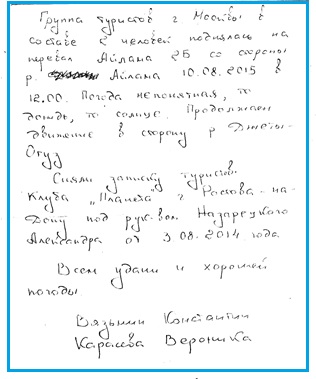 Группа туристов г Москвы в
составе 2 человек поднялась на
перевал Айлана 2Б со стороны
р. Айлана 10.08.2015 в
12.00. Погода непонятная, то
дождь, то солнце. Продолжаем
движение в сторону р Джеты-
Огуз
Сняли записку туристов
Клуба „Планета" г Ростова-на-
Дону под рук-вом Назарцукого
Александра от 9 08.2014 года
Всем удачи и хорошей
погоды
Вязьмин Константин
Карасева Вероника